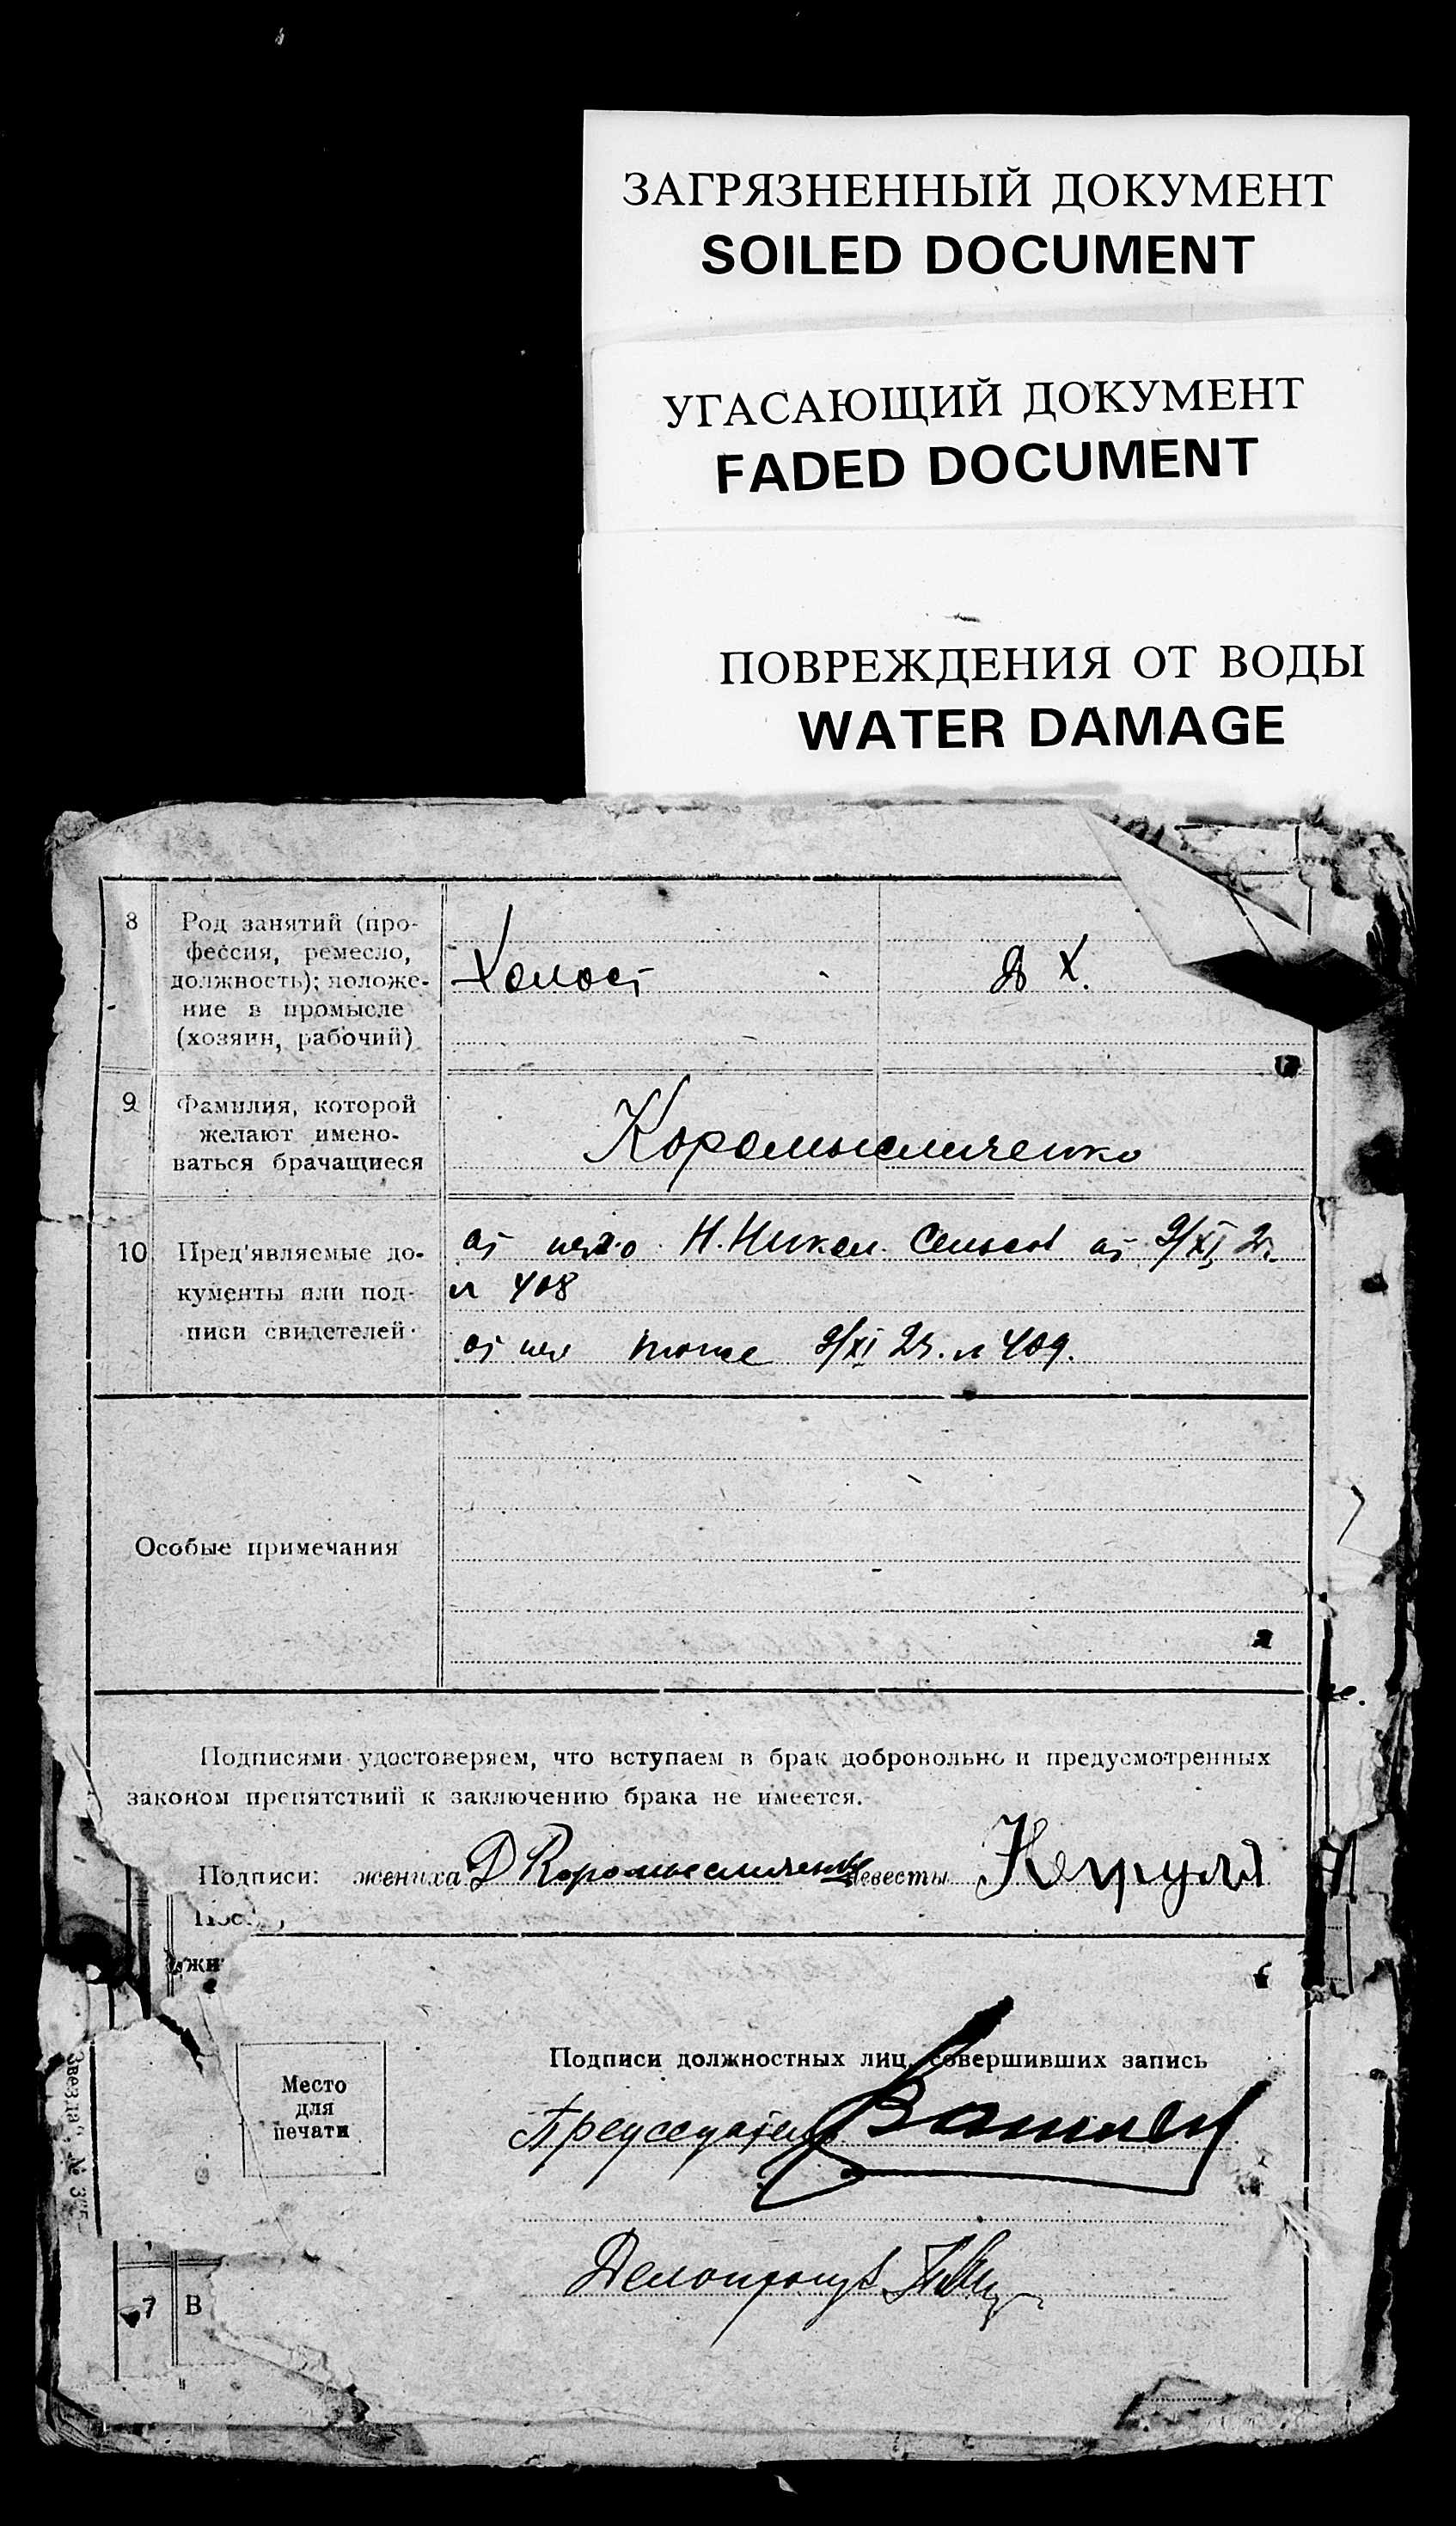 ЗАГРЯЗНЕННЫЙ ДОКУМЕНТ
SOILED DOCUMENT
УГАСАЮЩИЙ ДОКУМЕНТ
FADED DOCUMENT
ПОВРЕЖДЕНИЯ ОТ ВОДЫ
WATER DAMAGE
8 Род занятий (про-
фессия, ремесло,
должность); положе-
ние в промысле
(хозяин, рабочий)
Холост
Х.
9 Фамилия, которой
желают имено-
ваться брачащиеся
Коромысличенко
10 Пред'являемые до-
кументы или под-
писи свидетелей
от него Н. Никол. от 9/XI
№ 408
от нея тоже 9/XI 25. № 409.
Особые примечания
Подписями удостоверяем, что вступаем в брак добровольно и предусмотренных
законом препятствий к заключению брака не имеется.
Подписи: жениха Д Коромысличенко невесты
Место
для
печати
Подписи должностных лиц, совершивших запись
Председатель
Делопроизв
Звезда" №
7 В